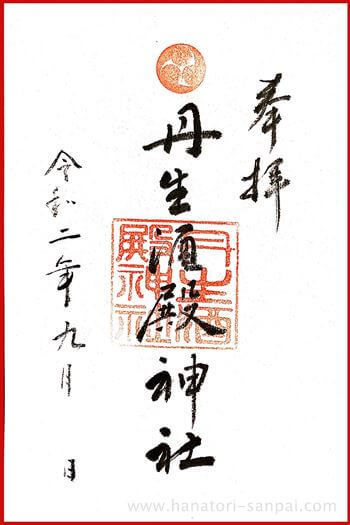 奉拝
丹生酒殿神社
丹生酒殿神社
令和二年九月 日
www.hanatori-sanpai.com